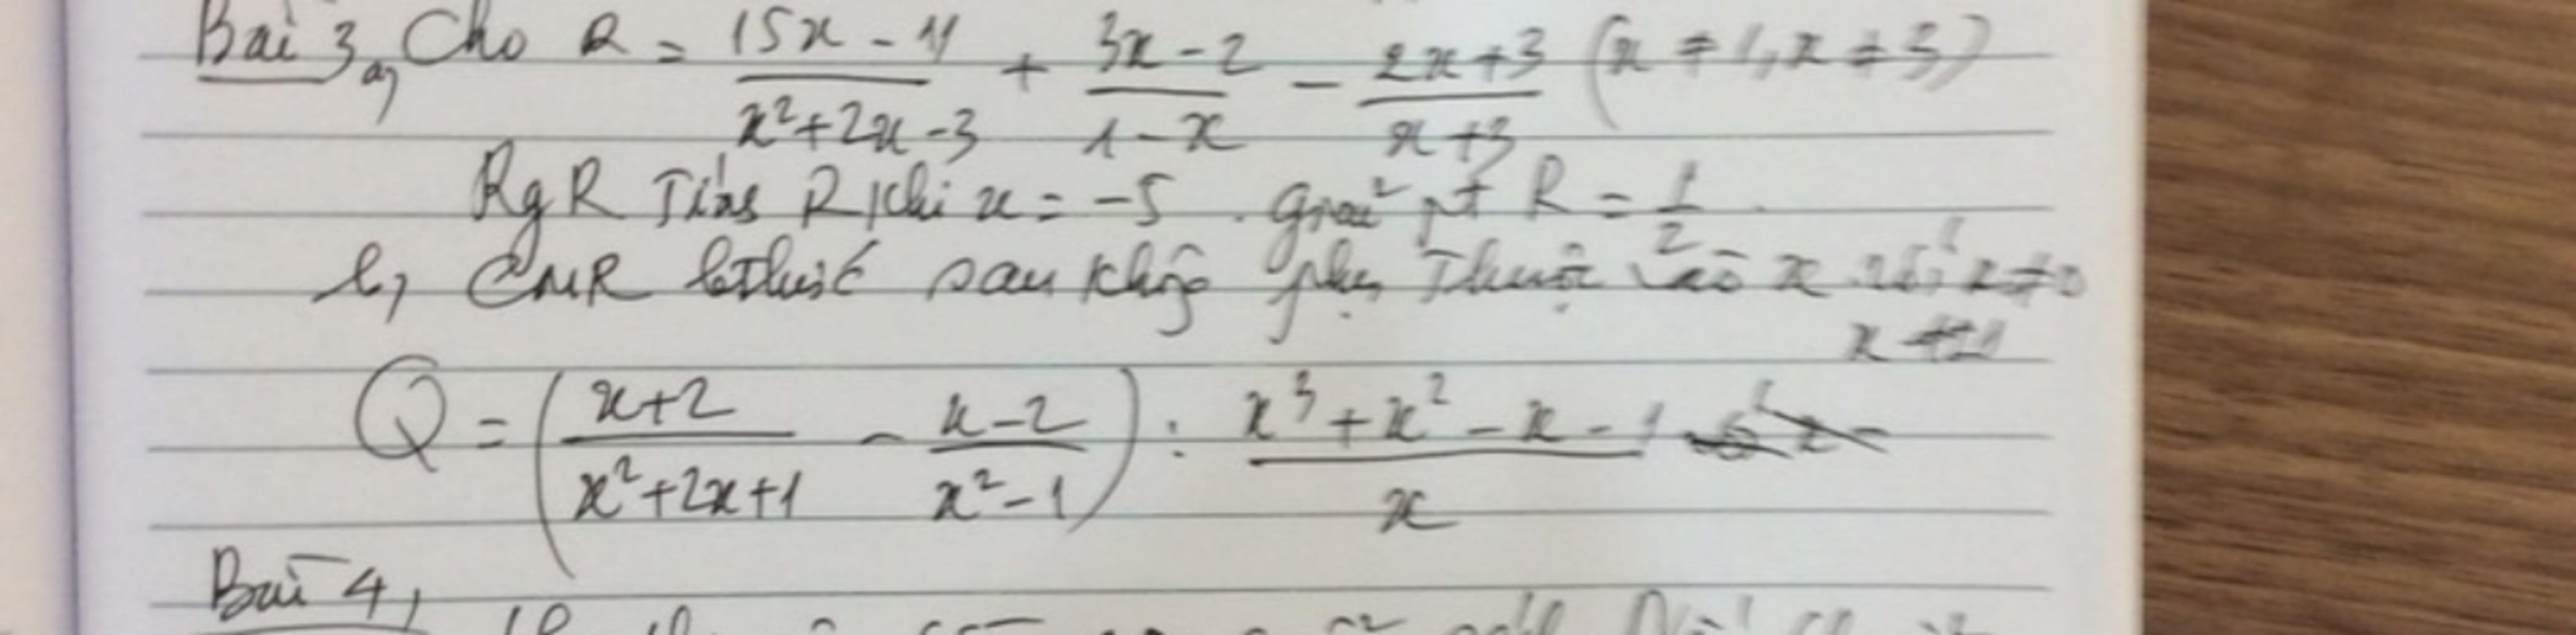 Bài 3, a, Cho R = (15x - 11)/(x² + 2x - 3) + (3x - 2)/(1 - x) - (2x + 3)/(x + 3) (x ≠ 1, x ≠ 3)
Rg R Tính R khi x = -5. Giải pt R = 1/2.
b, CMR bthức sau không phụ thuộc vào x với x ≠ 0
x ≠ ±1
Q = ((x + 2)/(x² + 2x + 1) - (x - 2)/(x² - 1)) : (x³ + x² - x - 1)/x
Bài 4,